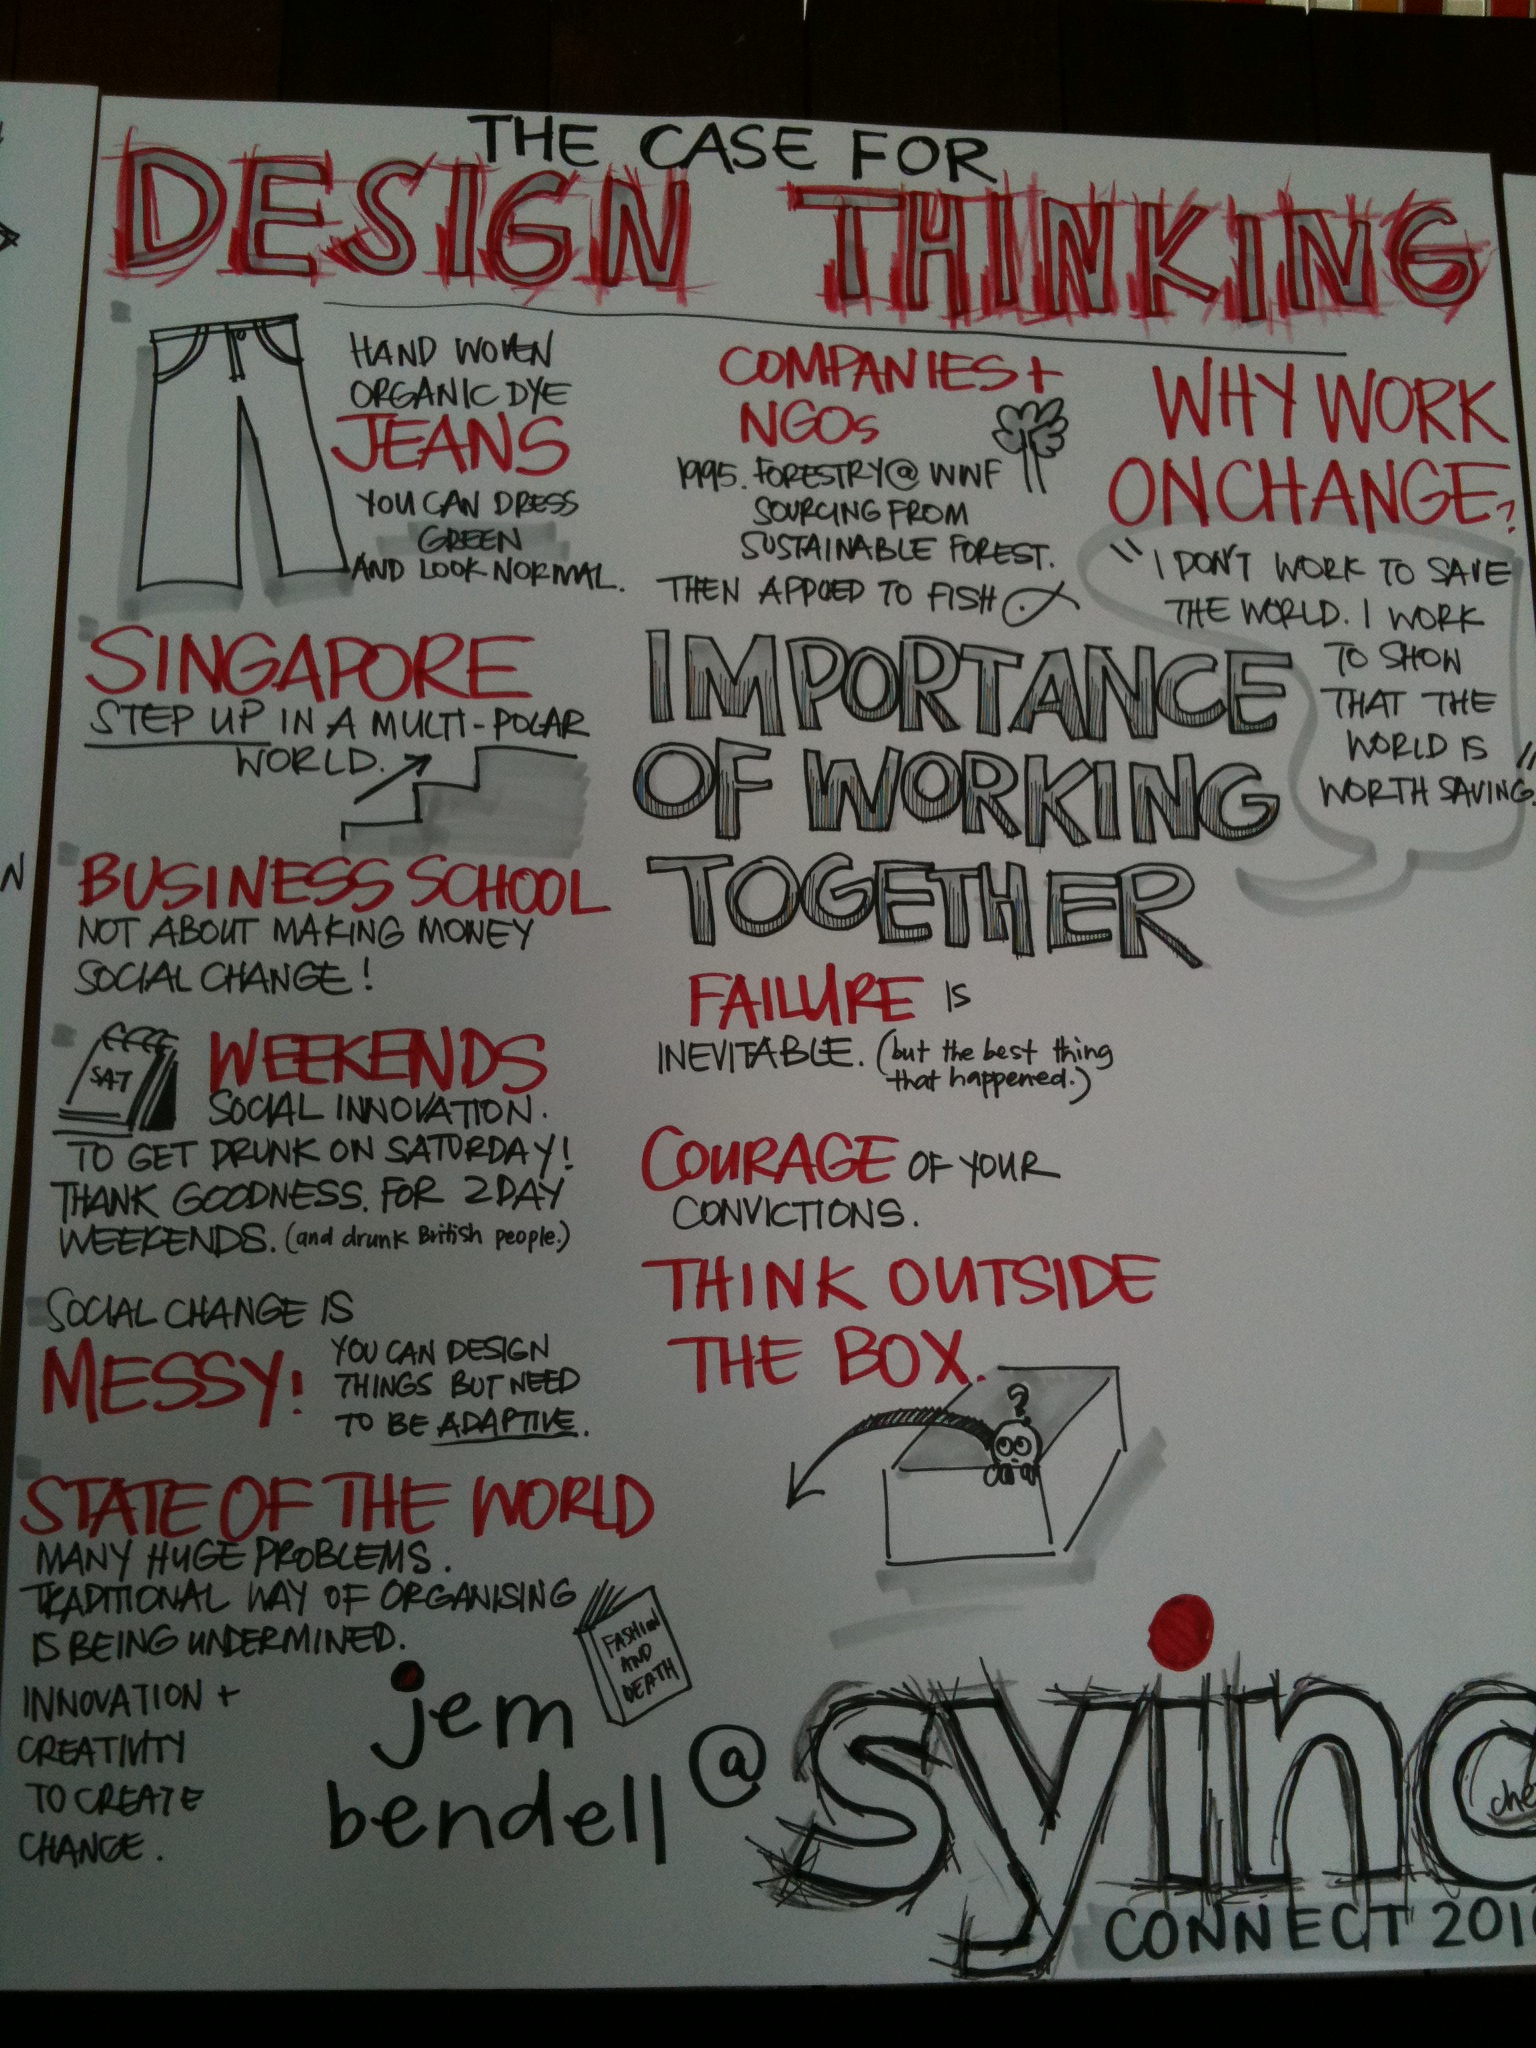 THE CASE FOR
DESIGN THINKING
HAND WOVEN
ORGANIC DYE
JEANS
YOU CAN DRESS
GREEN
AND LOOK NORMAL.
SINGAPORE
STEP UP IN A MULTI-POLAR
WORLD.
BUSINESS SCHOOL
NOT ABOUT MAKING MONEY
SOCIAL CHANGE!
SAT
WEEKENDS
SOCIAL INNOVATION.
TO GET DRUNK ON SATURDAY!
THANK GOODNESS. FOR 2 DAY
WEEKENDS. (and drunk British people.)
SOCIAL CHANGE IS
MESSY!
YOU CAN DESIGN
THINGS BUT NEED
TO BE ADAPTIVE.
STATE OF THE WORLD
MANY HUGE PROBLEMS.
TRADITIONAL WAY OF ORGANISING
IS BEING UNDERMINED.
INNOVATION +
CREATIVITY
TO CREATE
CHANGE.
COMPANIES +
NGOs
1995. FORESTRY @ WWF
SOURCING FROM
SUSTAINABLE FOREST.
THEN APPLIED TO FISH
IMPORTANCE
OF WORKING
TOGETHER
FAILURE IS
INEVITABLE. (but the best thing
that happened.)
COURAGE OF YOUR
CONVICTIONS.
THINK OUTSIDE
THE BOX.
?
WHY WORK
ON CHANGE?
"I DON'T WORK TO SAVE
THE WORLD. I WORK
TO SHOW
THAT THE
WORLD IS
WORTH SAVING."
FASHION
AND
DEATH
jem
bendell
@ syinc
CONNECT 201
N